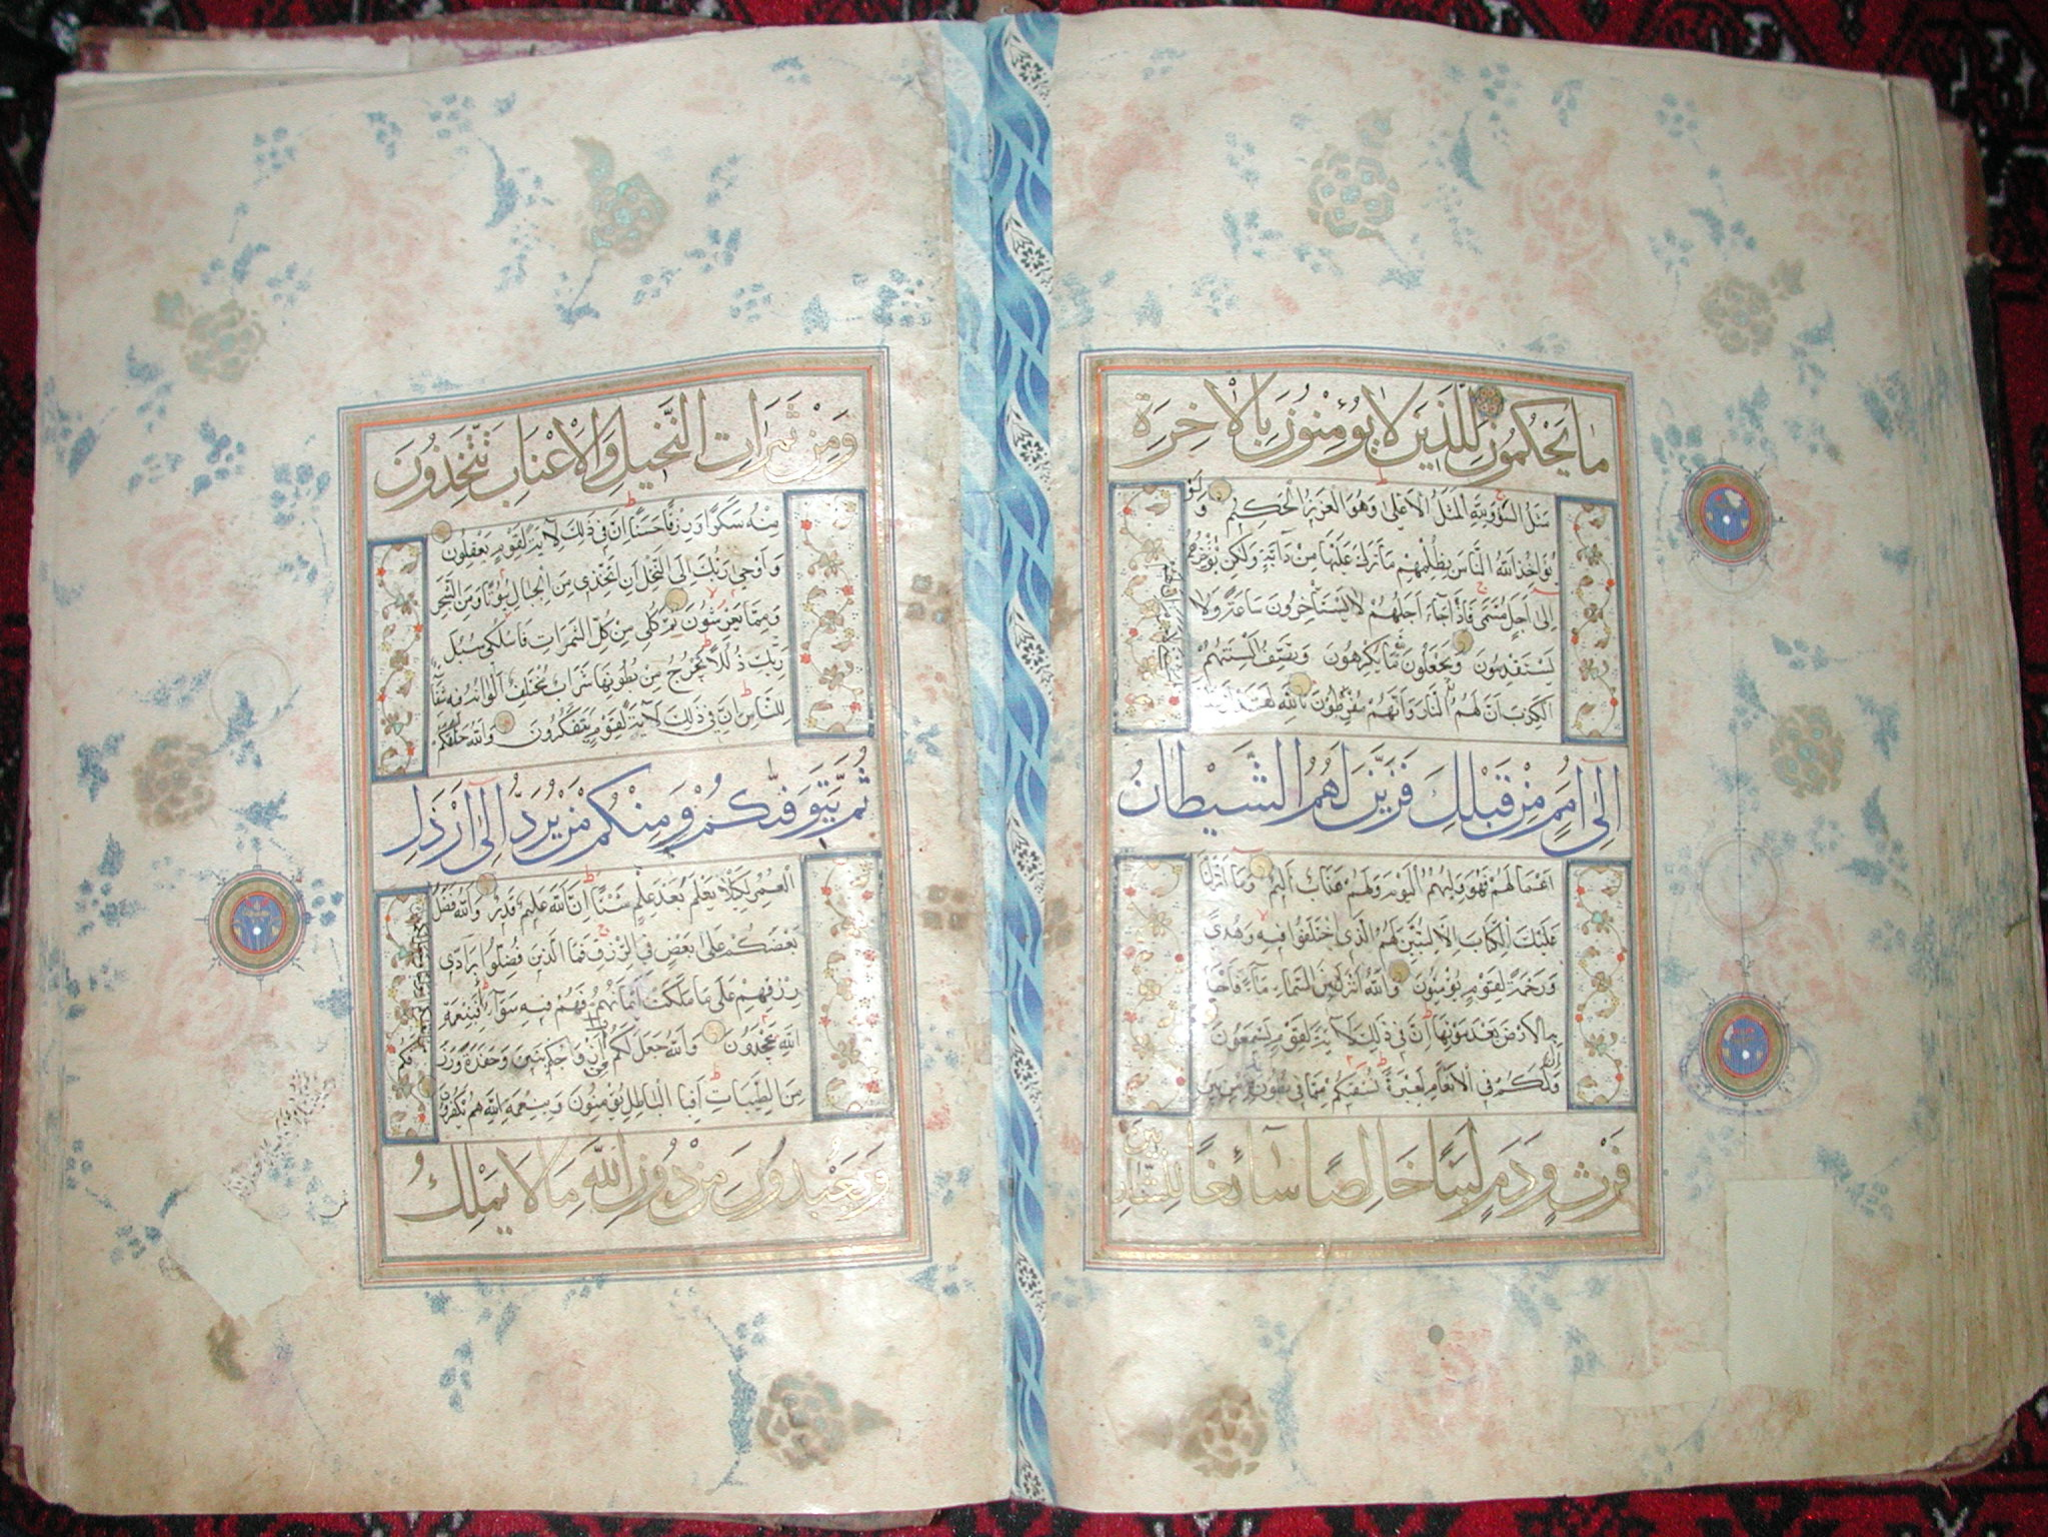 مَا يَحْكُمُونَ لِلَّذِينَ لَا يُؤْمِنُونَ بِالْاٰخِرَةِ
مَثَلُ السَّوْءِ وَلِلّٰهِ الْمَثَلُ الْاَعْلٰى وَهُوَ الْعَزِيزُ الْحَكِيمُ وَلَوْ
يُؤَاخِذُ اللّٰهُ النَّاسَ بِظُلْمِهِمْ مَا تَرَكَ عَلَيْهَا مِنْ دَابَّةٍ وَلٰكِنْ يُؤَخِّرُهُمْ
اِلٰى اَجَلٍ مُسَمًّى فَاِذَا جَاءَ اَجَلُهُمْ لَا يَسْتَأْخِرُونَ سَاعَةً وَلَا
يَسْتَقْدِمُونَ وَيَجْعَلُونَ مَا يَكْرَهُونَ وَتَصِفُ اَلْسِنَتُهُمُ
الْكَذِبَ اَنَّ لَهُمُ النَّارَ وَاَنَّهُمْ مُفْرَطُونَ تَاللّٰهِ لَقَدْ
اِلٰى اُمَمٍ مِنْ قَبْلِكَ فَزَيَّنَ لَهُمُ الشَّيْطَانُ
اَعْمَالَهُمْ فَهُوَ وَلِيُّهُمُ الْيَوْمَ وَلَهُمْ عَذَابٌ اَلِيمٌ وَمَا اَنْزَلْنَا
عَلَيْكَ الْكِتَابَ اِلَّا لِتُبَيِّنَ لَهُمُ الَّذِى اخْتَلَفُوا فِيهِ وَهُدًى
وَرَحْمَةً لِقَوْمٍ يُؤْمِنُونَ وَاللّٰهُ اَنْزَلَ مِنَ السَّمَاءِ مَاءً فَاَحْيَا
بِهِ الْاَرْضَ بَعْدَ مَوْتِهَا اِنَّ فِى ذٰلِكَ لَاٰيَةً لِقَوْمٍ يَسْمَعُونَ
وَاِنَّ لَكُمْ فِى الْاَنْعَامِ لَعِبْرَةً نُسْقِيكُمْ مِمَّا فِى بُطُونِهِ مِنْ بَيْنِ
فَرْثٍ وَدَمٍ لَبَنًا خَالِصًا سَائِغًا لِلشَّارِبِينَ
وَمِنْ ثَمَرَاتِ النَّخِيلِ وَالْاَعْنَابِ تَتَّخِذُونَ
مِنْهُ سَكَرًا وَرِزْقًا حَسَنًا اِنَّ فِى ذٰلِكَ لَاٰيَةً لِقَوْمٍ يَعْقِلُونَ
وَاَوْحٰى رَبُّكَ اِلَى النَّحْلِ اَنِ اتَّخِذِى مِنَ الْجِبَالِ بُيُوتًا وَمِنَ الشَّجَرِ
وَمِمَّا يَعْرِشُونَ ثُمَّ كُلِى مِنْ كُلِّ الثَّمَرَاتِ فَاسْلُكِى سُبُلَ
رَبِّكِ ذُلُلًا يَخْرُجُ مِنْ بُطُونِهَا شَرَابٌ مُخْتَلِفٌ اَلْوَانُهُ فِيهِ شِفَاءٌ
لِلنَّاسِ اِنَّ فِى ذٰلِكَ لَاٰيَةً لِقَوْمٍ يَتَفَكَّرُونَ وَاللّٰهُ خَلَقَكُمْ
ثُمَّ يَتَوَفّٰيكُمْ وَمِنْكُمْ مَنْ يُرَدُّ اِلٰى اَرْذَلِ
الْعُمُرِ لِكَيْلَا يَعْلَمَ بَعْدَ عِلْمٍ شَيْئًا اِنَّ اللّٰهَ عَلِيمٌ قَدِيرٌ وَاللّٰهُ فَضَّلَ
بَعْضَكُمْ عَلٰى بَعْضٍ فِى الرِّزْقِ فَمَا الَّذِينَ فُضِّلُوا بِرَادِّى
رِزْقِهِمْ عَلٰى مَا مَلَكَتْ اَيْمَانُهُمْ فَهُمْ فِيهِ سَوَاءٌ اَفَبِنِعْمَةِ
اللّٰهِ يَجْحَدُونَ وَاللّٰهُ جَعَلَ لَكُمْ مِنْ اَزْوَاجِكُمْ بَنِينَ وَحَفَدَةً وَرَزَقَكُمْ
مِنَ الطَّيِّبَاتِ اَفَبِالْبَاطِلِ يُؤْمِنُونَ وَبِنِعْمَةِ اللّٰهِ هُمْ يَكْفُرُونَ
وَيَعْبُدُونَ مِنْ دُونِ اللّٰهِ مَا لَا يَمْلِكُ